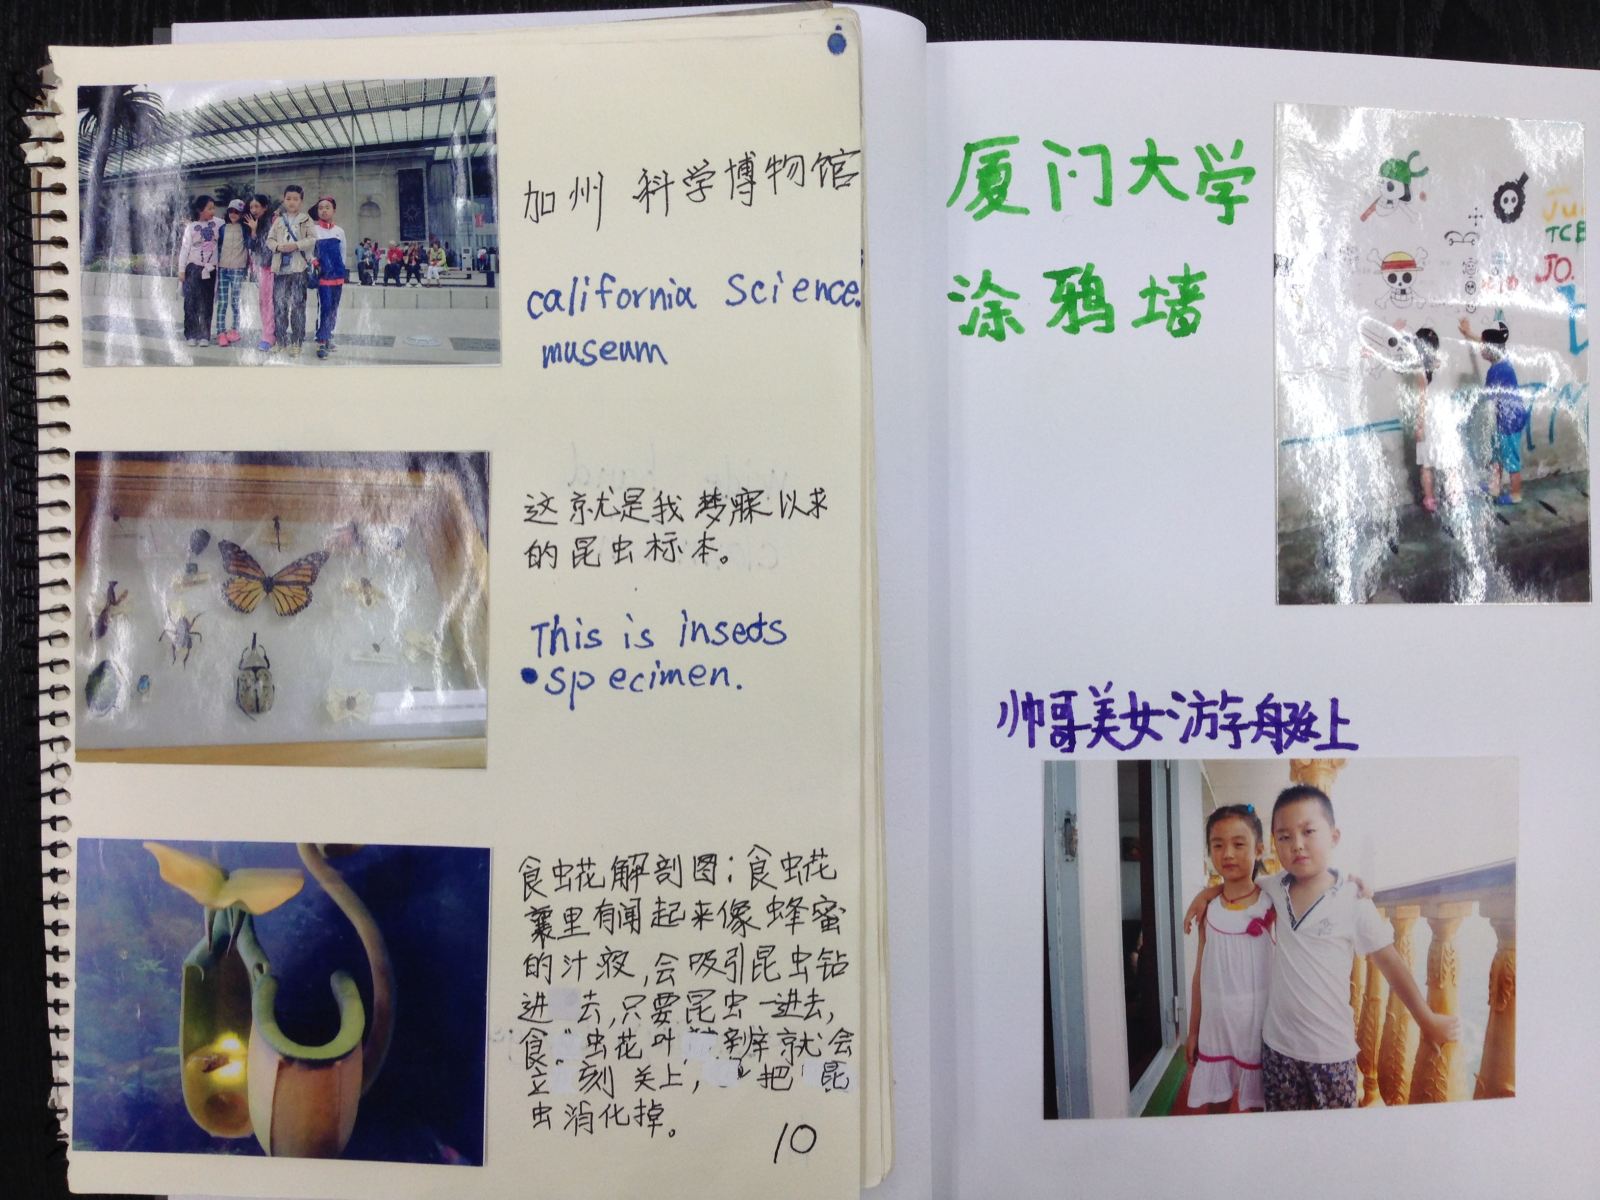 加州 科学博物馆
california Science.
museum
这就是我梦寐以求
的昆虫标本。
This is insects
specimen.
食虫花解剖图：食虫花
囊里有闻起来像蜂蜜
的汁液，会吸引昆虫钻
进去，只要昆虫一进去，
食虫花叶瓣就会
立刻关上，把昆
虫消化掉。
10
厦门大学
涂鸦墙
TCB
JO.
帅哥美女游字艇上